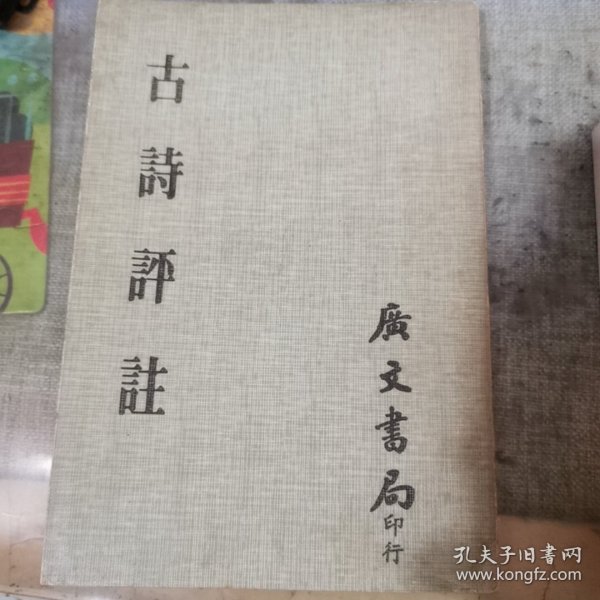 古詩評註
廣文書局印行
孔夫子旧书网
www.kongfz.com